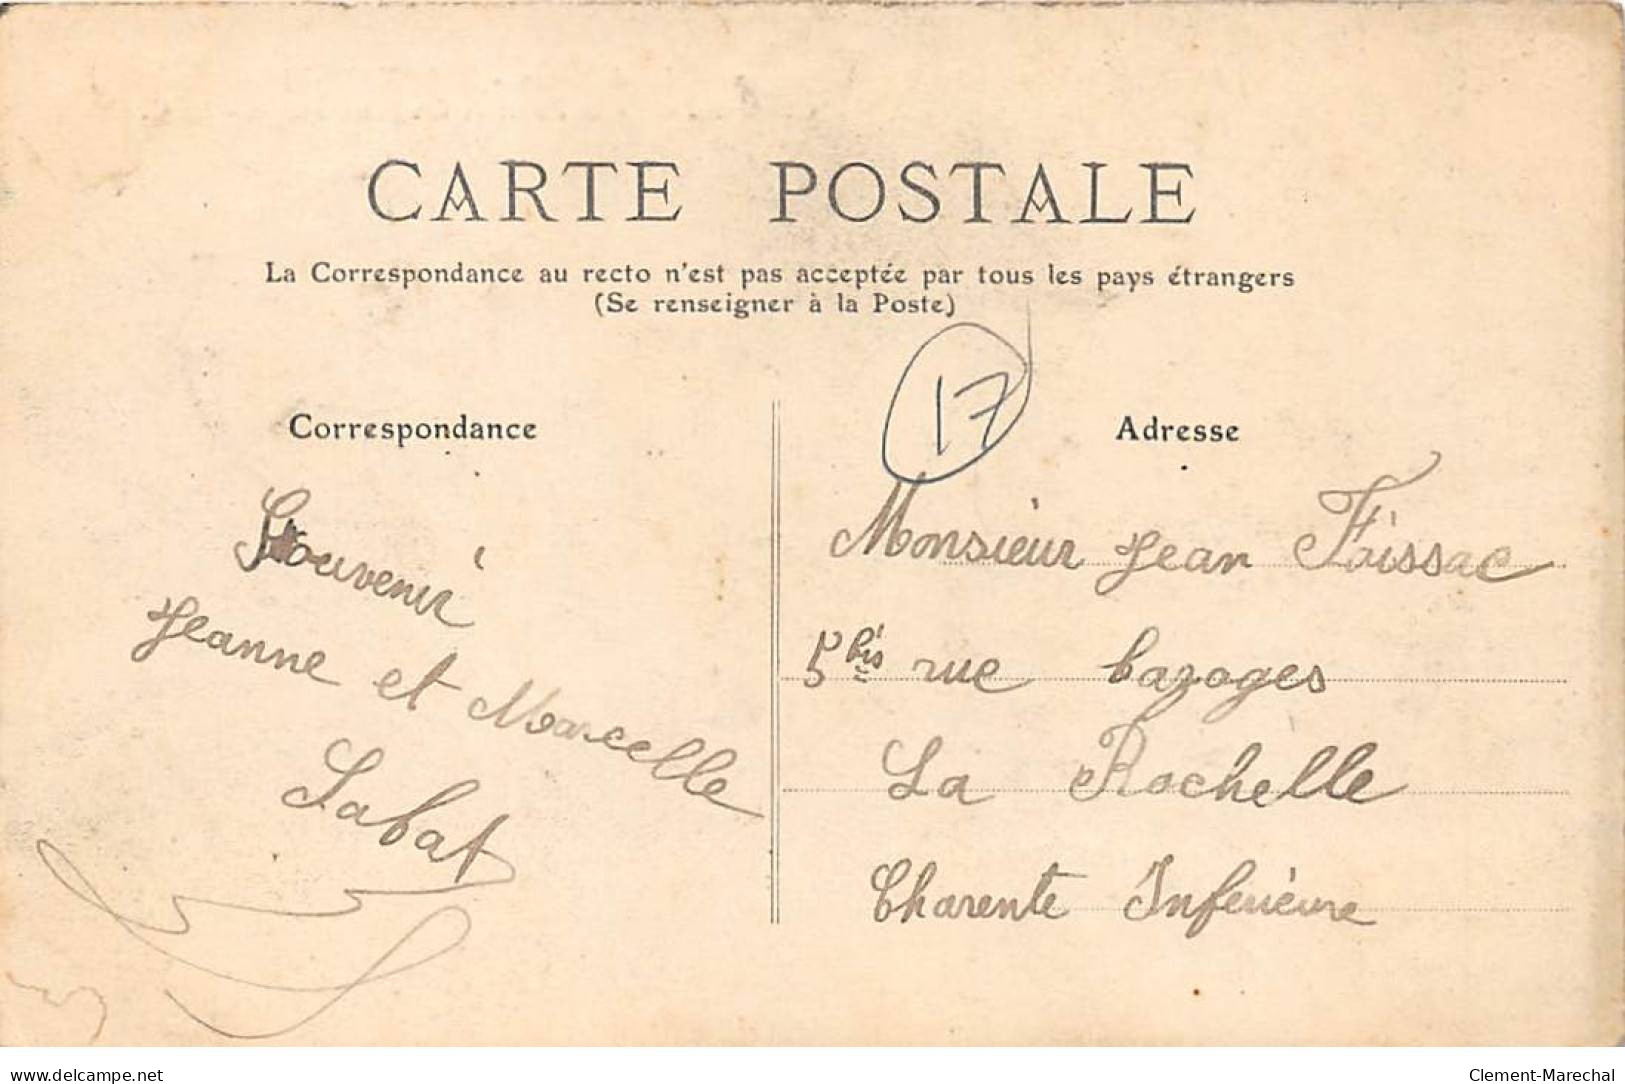 CARTE POSTALE
La Correspondance au recto n'est pas acceptée par tous les pays étrangers
(Se renseigner à la Poste)
17
Correspondance
Souvenir
Jeanne et Marcelle
Sabat
Adresse
Monsieur Jean Faissac
5 bis rue bazoges
La Rochelle
Charente Inferieure
delcampe.net
Clement-Marechal